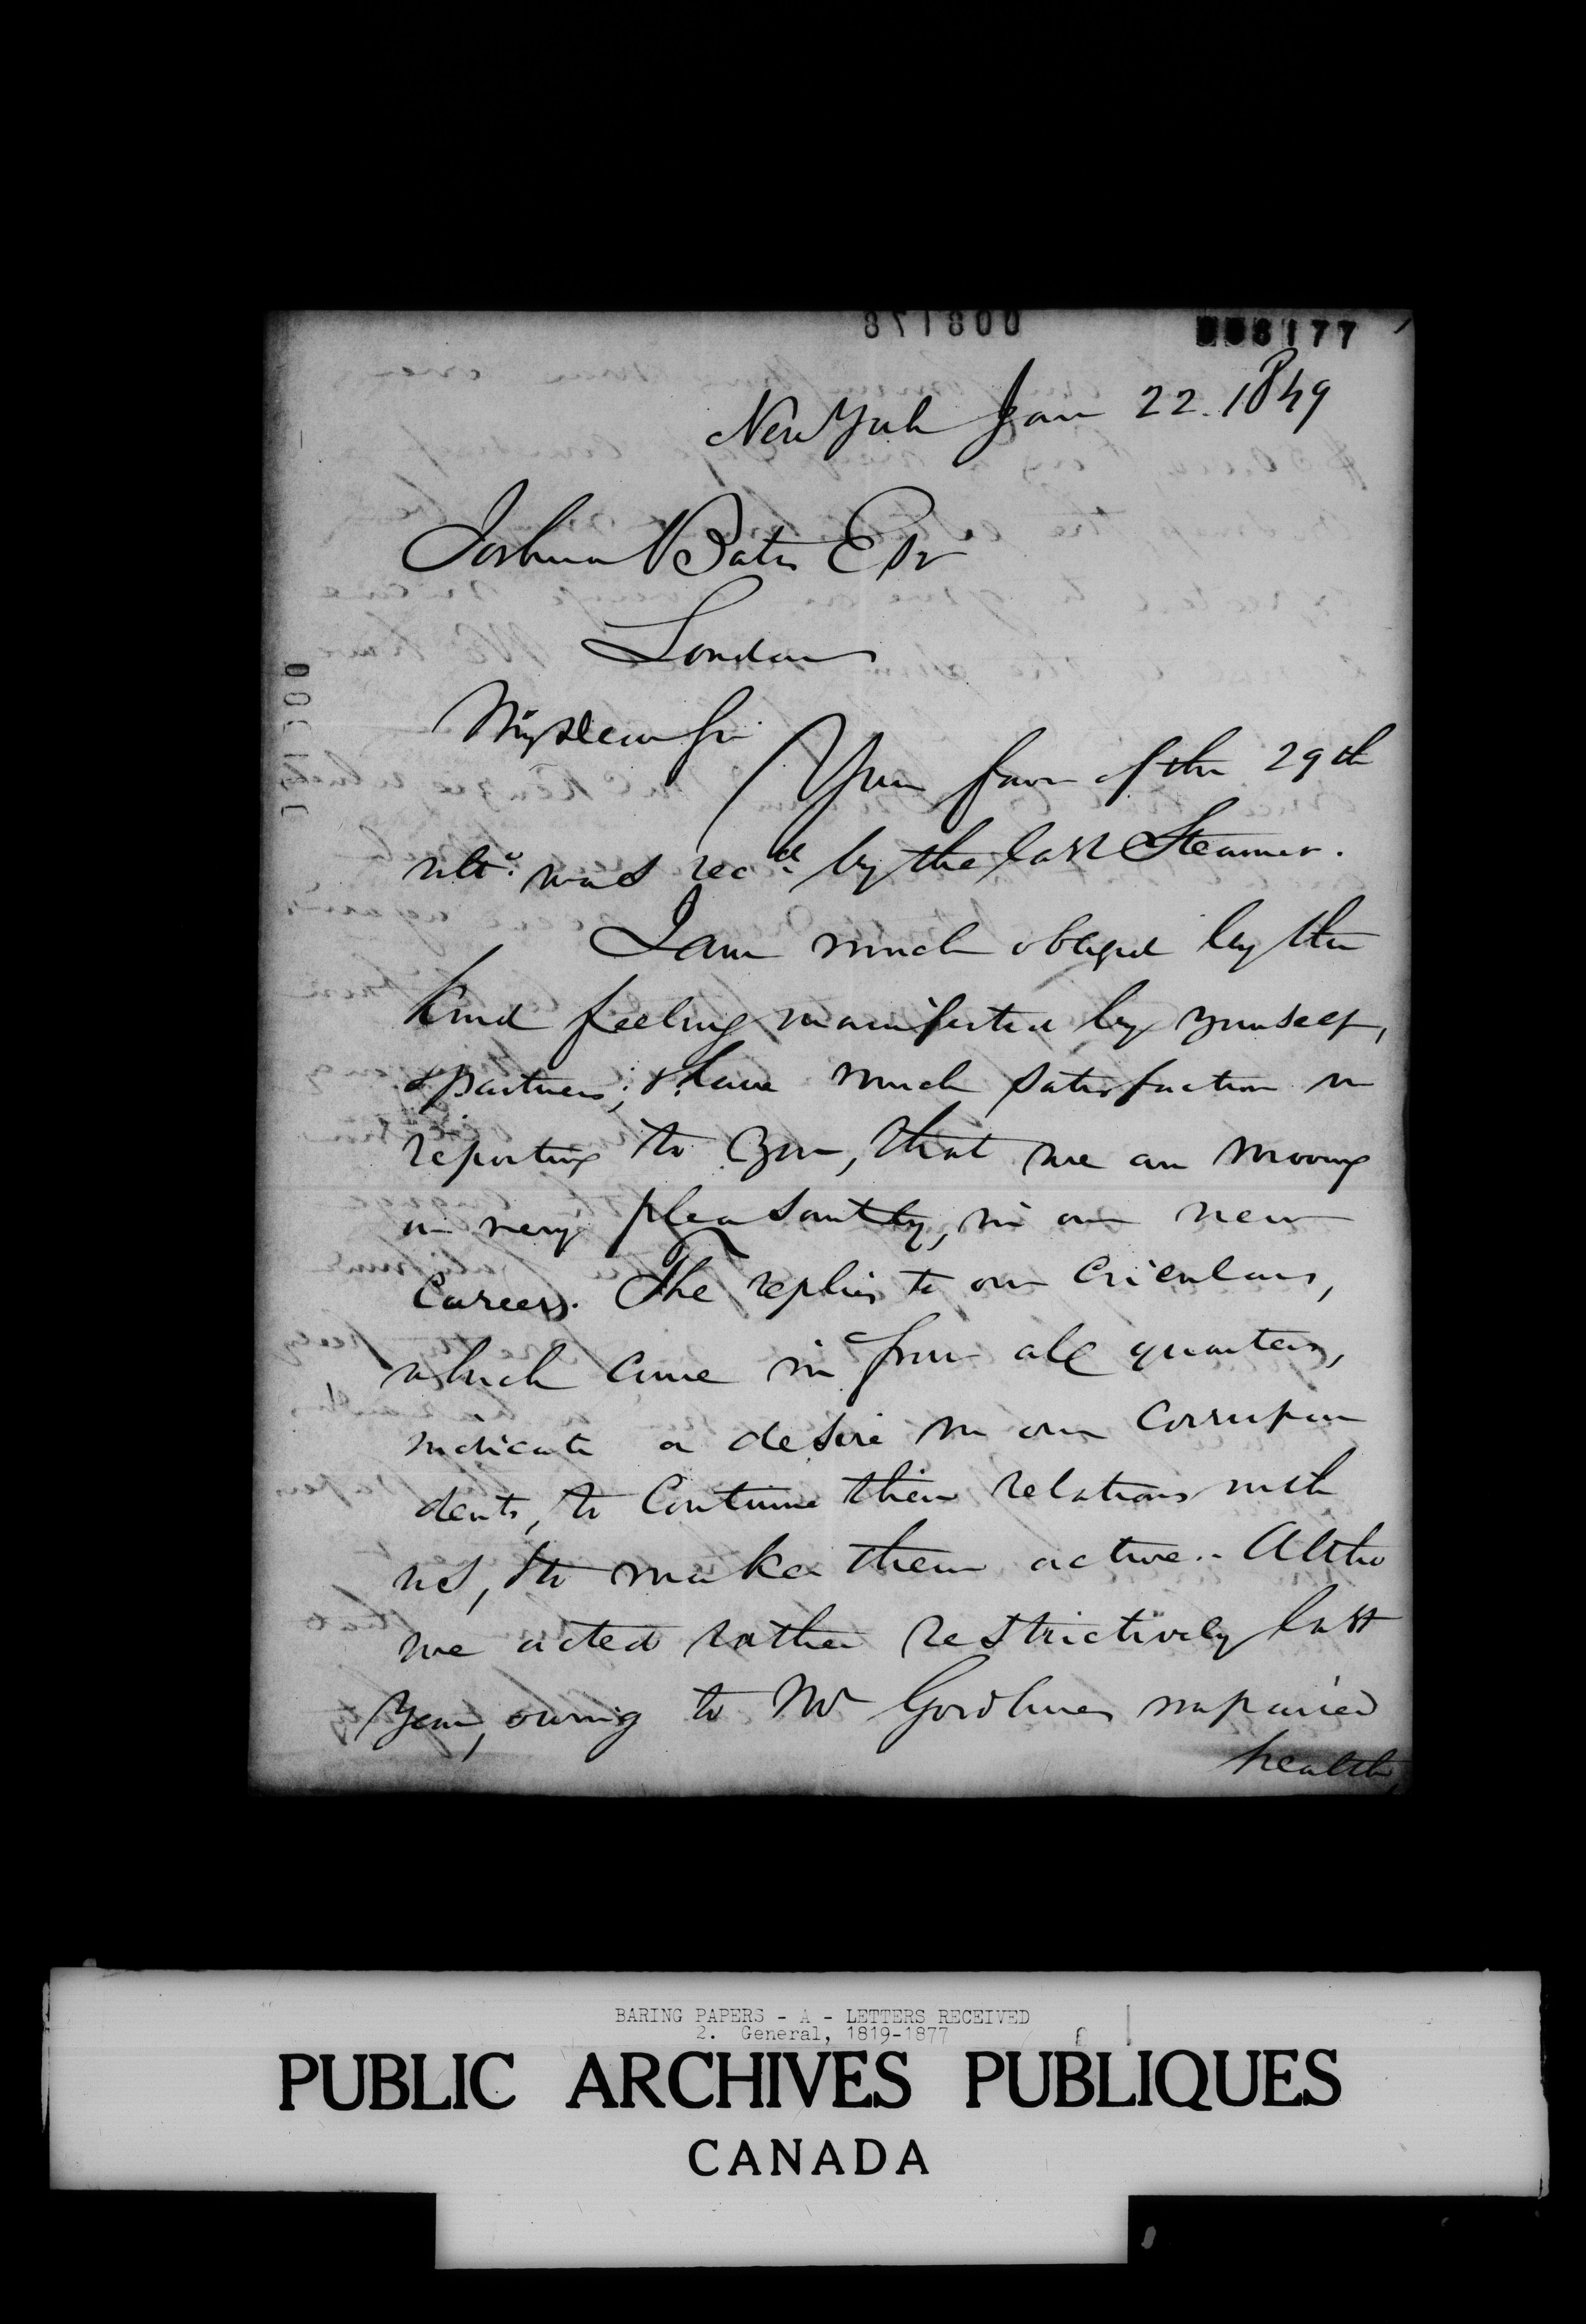 008177
New York Jan 22. 1849
Joshua Bates Esqr
London
My dear Sir
Your favor of the 29th
ulto. was recd by the last Steamer.
I am much obliged by the
kind feeling manifested by yourself,
& partners; & have much satisfaction in
reporting to you, that we are moving
on very pleasantly, in our new
Career. The replies to our Circulars,
which come in from all quarters,
indicate a desire in our Correspon
dents, to Continue their relations with
us, & to make them active.- Altho
we acted rather restrictively last
Year, owing to Mr Goodhues impaired
health,
BARING PAPERS - A - LETTERS RECEIVED
2. General, 1819-1877
PUBLIC ARCHIVES PUBLIQUES
CANADA